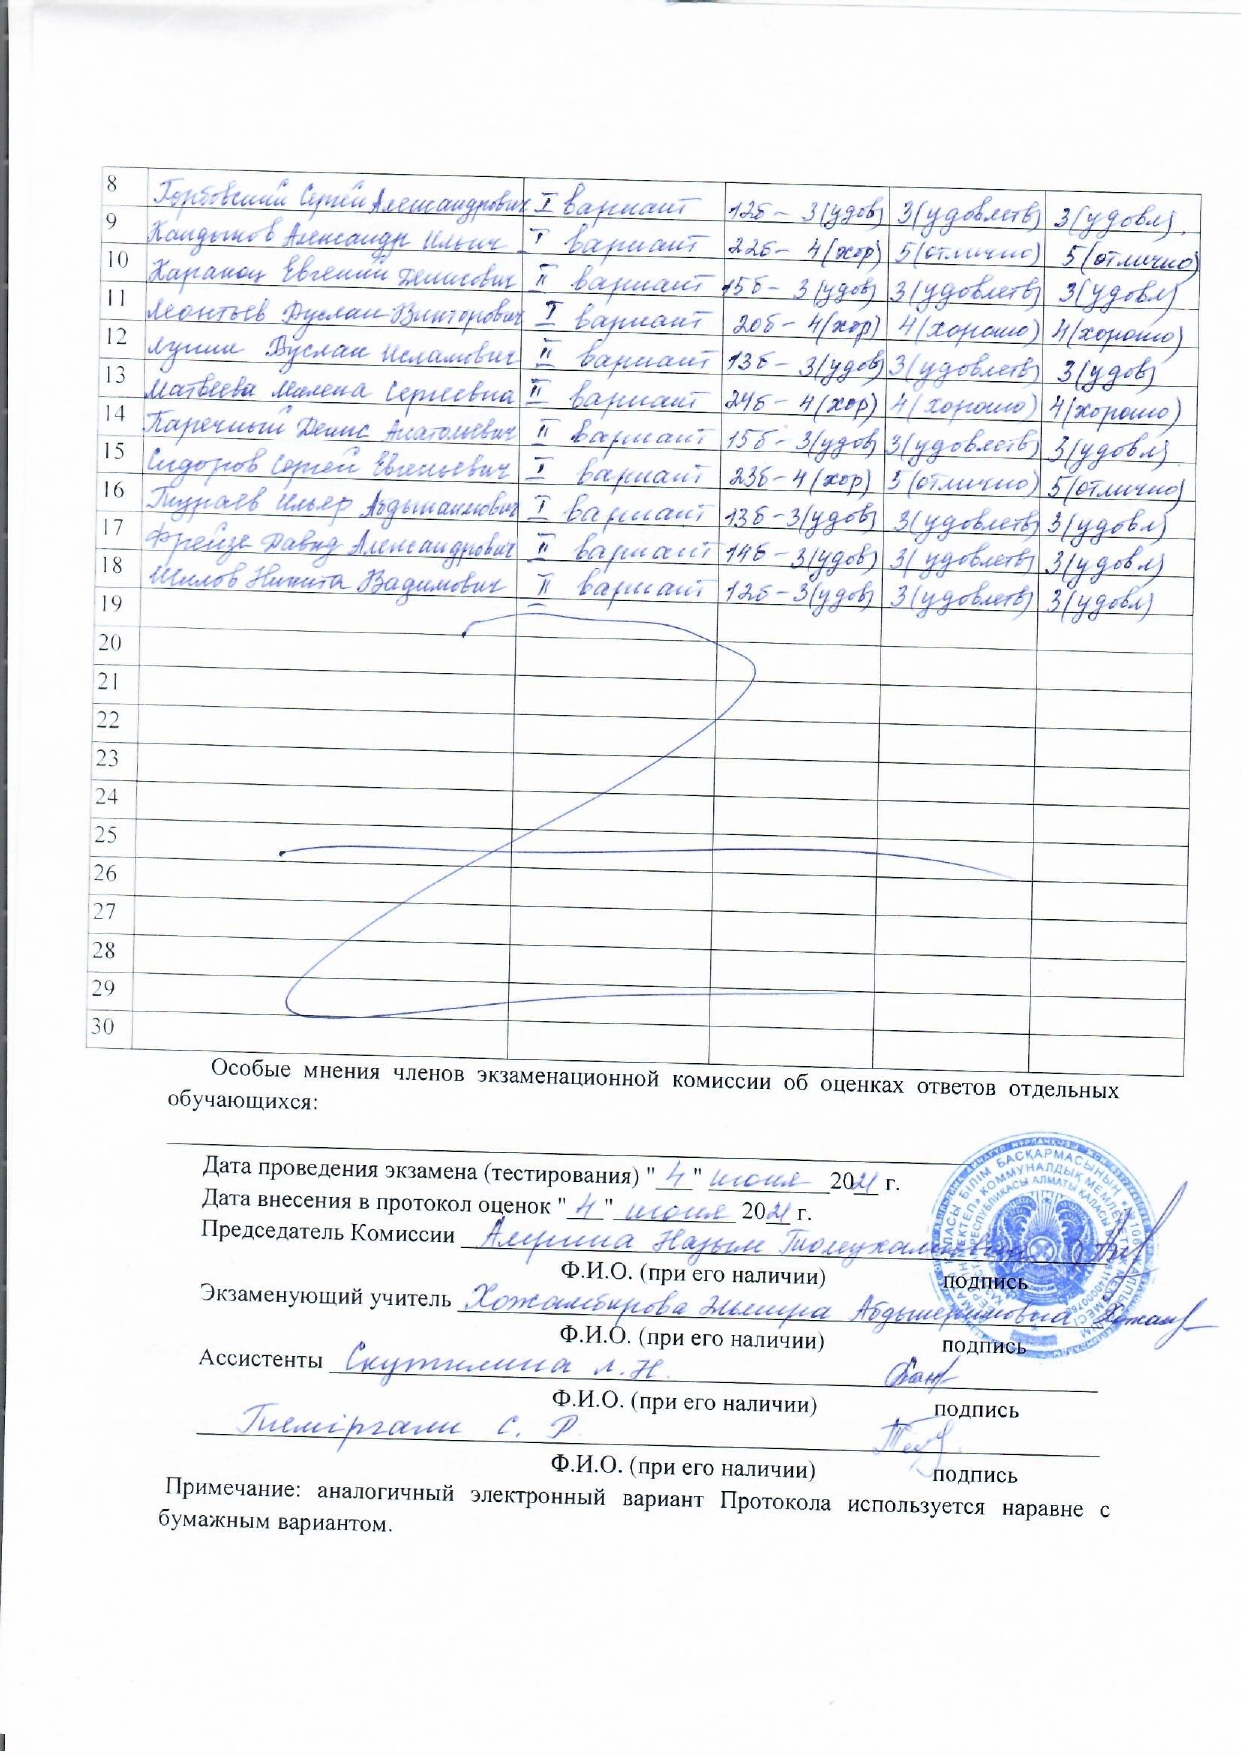 8 Горбовский Сергей Александрович I вариант 12б – 3(удов) 3(удовлетв) 3(удовл).
9 Кандыков Александр Ильич I вариант 22б – 4(хор) 5(отлично) 5(отлично)
10 Каранац Евгений Денисович II вариант 15б – 3(удов) 3(удовлетв) 3(удовл)
11 Леонтьев Руслан Викторович I вариант 20б – 4(хор) 4(хорошо) 4(хорошо)
12 Лунин Руслан Исламович II вариант 13б – 3(удов) 3(удовлетв) 3(удов)
13 Матвеева Милена Сергеевна II вариант 24б – 4(хор) 4(хорошо) 4(хорошо)
14 Паречный Денис Анатольевич II вариант 15б – 3(удов) 3(удовлетв) 3(удовл)
15 Сидоров Сергей Евгеньевич I вариант 23б – 4(хор) 5(отлично) 5(отлично)
16 Ильяр I вариант 13б – 3(удов) 3(удовлетв) 3(удовл)
17 Фрейзе Давид Александрович II вариант 14б – 3(удов) 3(удовлетв) 3(удовл)
18 Шилов Никита Вадимович II вариант 12б – 3(удов) 3(удовлетв) 3(удовл)
19
20
21
22
23
24
25
26
27
28
29
30
Особые мнения членов экзаменационной комиссии об оценках ответов отдельных
обучающихся:
Дата проведения экзамена (тестирования) "4" июня 2021 г.
Дата внесения в протокол оценок "4" июня 2021 г.
Председатель Комиссии Амрина Назым
Ф.И.О. (при его наличии) подпись
Экзаменующий учитель Хожамбирова Эльмира
Ф.И.О. (при его наличии) подпись
Ассистенты Скутилина Л.Н.
Ф.И.О. (при его наличии) подпись
Темірғали С. Р.
Ф.И.О. (при его наличии) подпись
Примечание: аналогичный электронный вариант Протокола используется наравне с
бумажным вариантом.